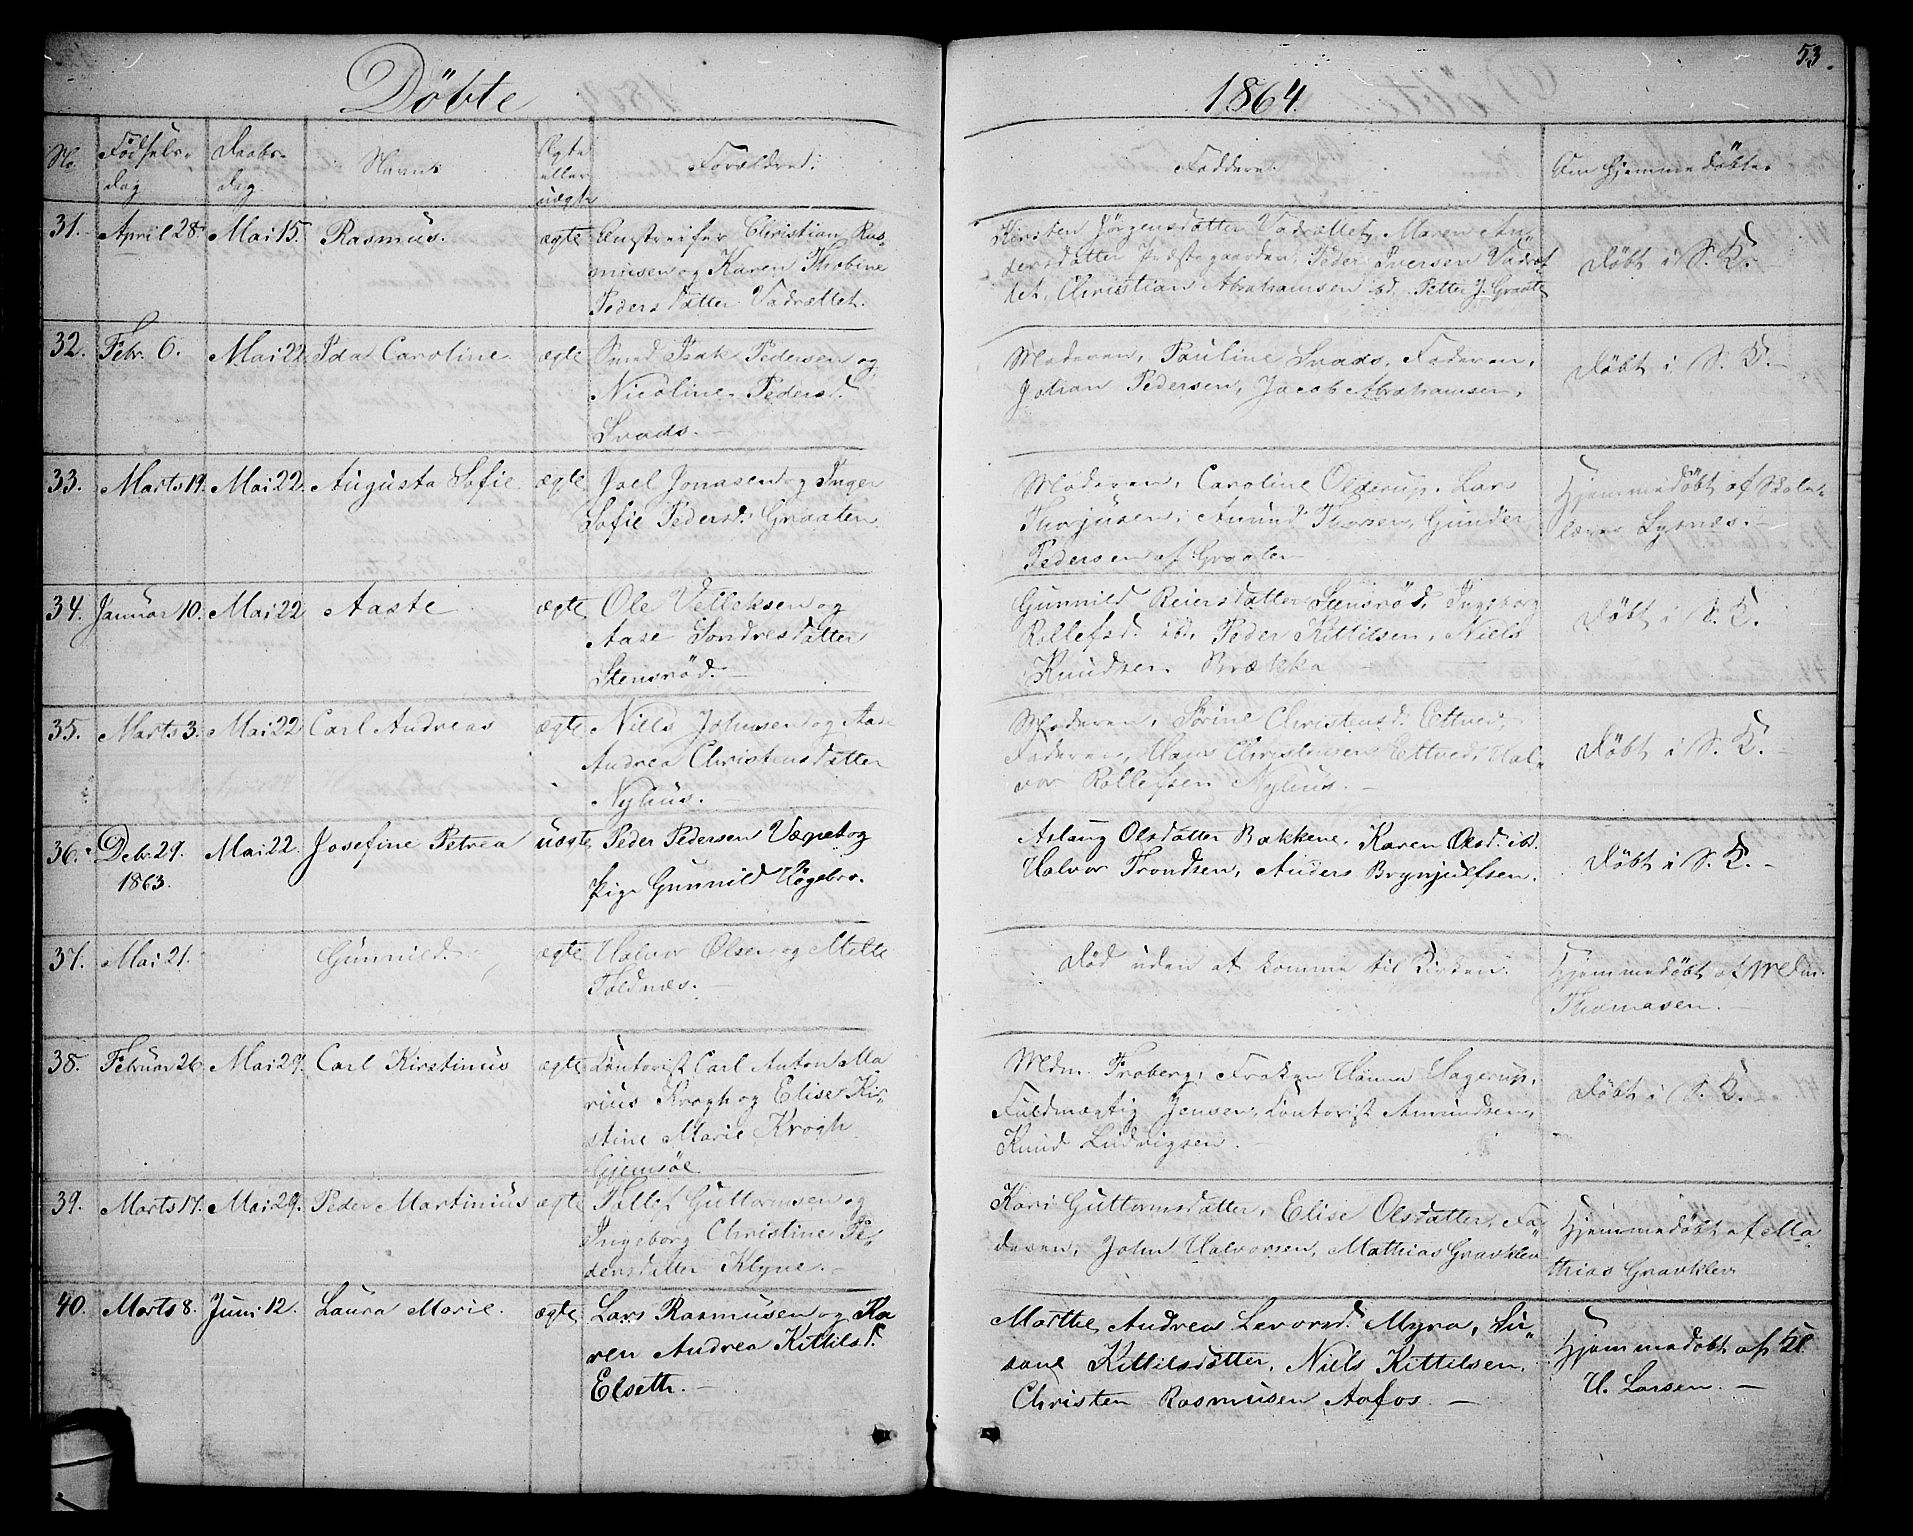 Döbte
1864.
53.
No. Fødselsdag Daabsdag Navn Ægte eller uægte Forældre.
Faddere. Om hjemmedöbt.
31. April 28. Mai 15. Rasmus. ægte Christian Rasmusen og Karen Thobine
Pedersdatter Vadrættet.
Kirsten Jörgensdatter Vadrættet, Maren Andersdatter
Peder Iversen Vadrættet, Christian Abrahamsen ibd, Petter J. Graate
döbt i S. K. –
32. Febr. 6. Mai 22. Ida Caroline ægte Isak Pedersen og
Nicoline Pedersd.
Svads. –
Moderen, Pauline Svads, Faderen,
Johan Pedersen, Jacob Abrahamsen.
döbt i S. K. –
33. Marts 19. Mai 22. Augusta Sofie ægte Joel Jonasen og Inger
Sofie Pedersd. Graaten.
Moderen, Caroline Olderup, Lars
Thorjusen, Amund Thorsen, Gunder
Pedersen af Graaten
Hjemmedöbt af Skolelærer
Lysnæs. –
34. Januar 10. Mai 22. Aaste ægte Ole Vetleksen og
Aase Sondresdatter
Stensröd. –
Gunnild Reiersdatter Stensröd, Ingeborg
Rollefsd. ibd, Peder Kittilsen, Niels
Knudsen Brækka –
döbt i S. K.
35. Marts 3. Mai 22. Carl Andreas ægte Niels Johnsen og Aase
Andrea Christensdatter
Nyhus. –
Moderen, Sörine Christensd. Ettved,
Faderen, Hans Christensen Ettved, Halvor
Rollefsen Nyhus. –
döbt i S. K. –
36. Debr. 29. Mai 22. Josefine Petrea uægte Peder Pedersen Væpnet og
1863. Pige Gunnild Högebro.
Aslaug Olsdatter Bakkene, Karen Olsd. ibd.
Halvor Trondsen, Anders Brynjulfsen.
döbt i S. K. –
37. Mai 21. Gunnild. ægte Halvor Olsen og Mette
Foldnæs. –
Död uden at komme til Kirken.
Hjemmedöbt af Mdm.
Thomasen. –
38. Februar 26. Mai 29. Carl Kirstinius ægte Contorist Carl Anton Marius
Krogh og Elise Kirstine
Marie Krogh
Gjemsöe
Mdm. Froberg, Fröken Hanna Hagerup,
Fuldmægtig Jensen, Contorist Amundsen,
Knud Ludvigsen. –
döbt i S. K. –
39. Marts 17. Mai 29. Peder Martinius ægte Tollef Guttormsen og
Ingeborg Christine Pedersdatter
Klyve. –
Kari Guttormsdatter, Elise Olsdatter, Faderen,
John Halvorsen, Mathias Gravklev
Hjemmedöbt af Mathias
Gravklev
40. Marts 8. Juni 12. Laura Marie. ægte Lars Rasmusen og Karen
Andrea Kittilsd.
Elseth. –
Marthe Andrea Levorsd. Myra, Susane
Kittilsdatter, Niels Kittilsen,
Christen Rasmusen Aafos. –
Hjemmedöbt af
H. Larsen. –